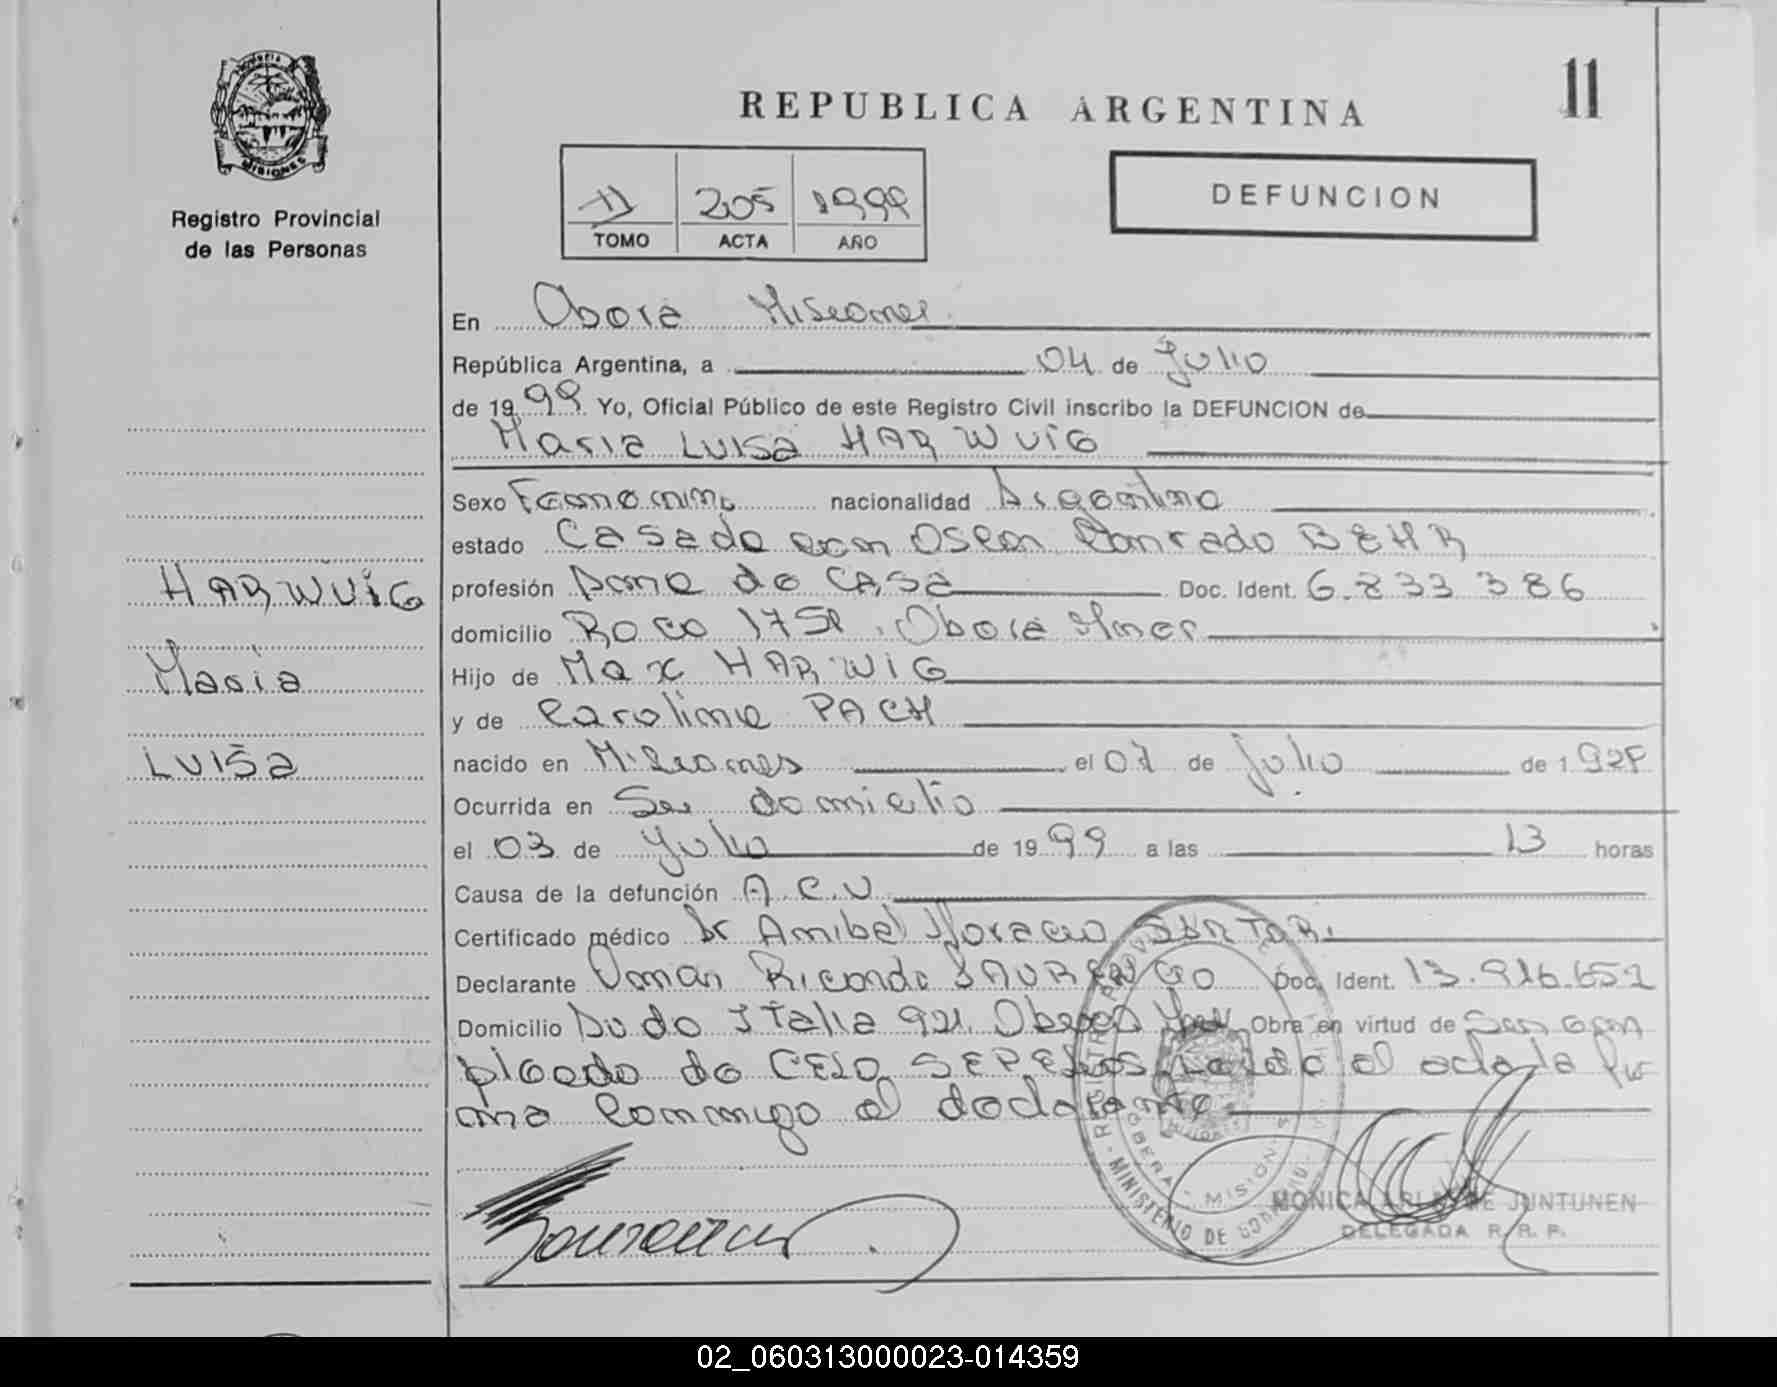 REPUBLICA ARGENTINA
11
PROVINCIA DE
MISIONES
Registro Provincial
de las Personas
11 205 1999
TOMO ACTA AÑO
DEFUNCION
En Obera Misiones
República Argentina, a 04 de Julio
de 1999 Yo, Oficial Público de este Registro Civil inscribo la DEFUNCION de
Maria LUISA HARWUIG
Sexo Femenino nacionalidad Argentina
estado Casada con Oscar Conrado BEHR
profesión Ama de CASA Doc. Ident. 6.833 386
domicilio Roca Obera Mnes
Hijo de Max HARWIG
y de Carolina PACH
nacido en Misiones el 07 de Julio de 1
Ocurrida en Su domicilio
el 03 de Julio de 1999 a las 13 horas
Causa de la defunción A.C.V.
Certificado médico Dr Anibal Horacio SARTORI
Declarante Omar Ricardo LAURENCIO Doc. Ident. 13.916.652
Domicilio Italia 921 Obera Mnes Obra en virtud de Ser em
pleado de CELO SEPELIOS Leida el acta la fir
ma conmigo el declarante
HARWUIG
Maria
LUISA
MINISTERIO DE GOBIERNO
MISIONES
MONICA DE JUNTUNEN
DELEGADA R. R. P.
02_060313000023-014359